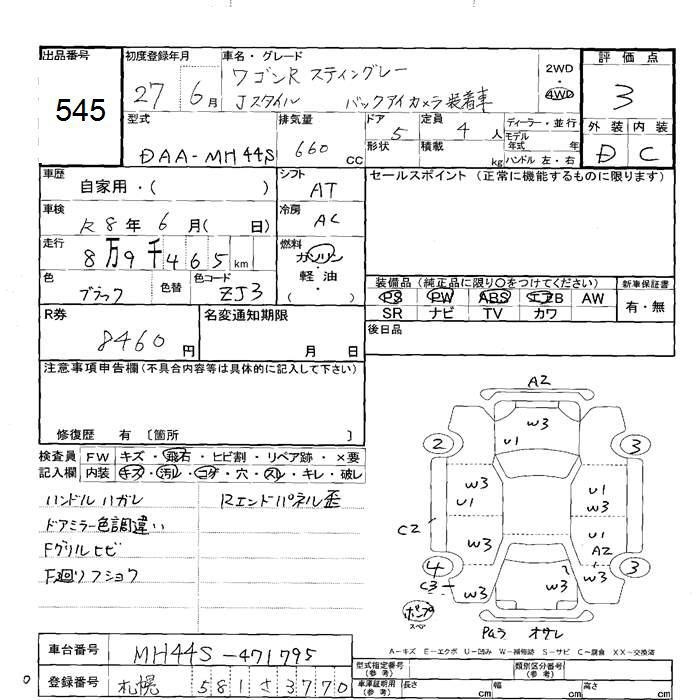 出品番号
545
初度登録年月
27 6月
車名・グレード
ワゴンR スティングレー
Jスタイル バックアイカメラ装着車
2WD
・
4WD
評価点
3
外装 内装
D C
型式
DAA-MH44S
排気量
660 CC
ドア 5
形状
定員 4 人
積載 kg
ディーラー・並行
モデル
年式 年
ハンドル 左・右
車歴
自家用・( )
シフト
AT
セールスポイント (正常に機能するものに限ります)
車検
R8年 6月( 日)
冷房
AC
走行
8万9千465km
燃料
ガソリン
軽・油
( )
色
ブラック
色替
色コード
ZJ3
装備品 (純正品に限り○をつけてください)
PS PW ABS エアB AW
SR ナビ TV カワ
新車保証書
有・無
R券
8460円
名変通知期限
月 日
後日品
注意事項申告欄(不具合内容等は具体的に記入して下さい)
修復歴 有 〔箇所 〕
検査員
記入欄
FW キズ・飛石・ヒビ割・リペア跡・×要
内装 キズ・汚レ・コゲ・穴・スレ・キレ・破レ
ハンドルハガレ
Rエンドパネル歪
ドアミラー色調違い
Fグリルヒビ
F廻りフショク
A2
W3
U1
2
3
W3
U1
U1
W3
C2
W3
U1
A2
4
C3
W3
W3
W3
3
ポンプ
スペア
Paラ オサレ
A-キズ E-エクボ U-凹み W-補修跡 S-サビ C-腐食 XX-交換済
車台番号
MH44S-471795
登録番号
札幌 581さ3770
型式指定番号
(参考)
類別区分番号
(参考)
車庫証明用
(参考)
長さ cm
幅 cm
高さ cm